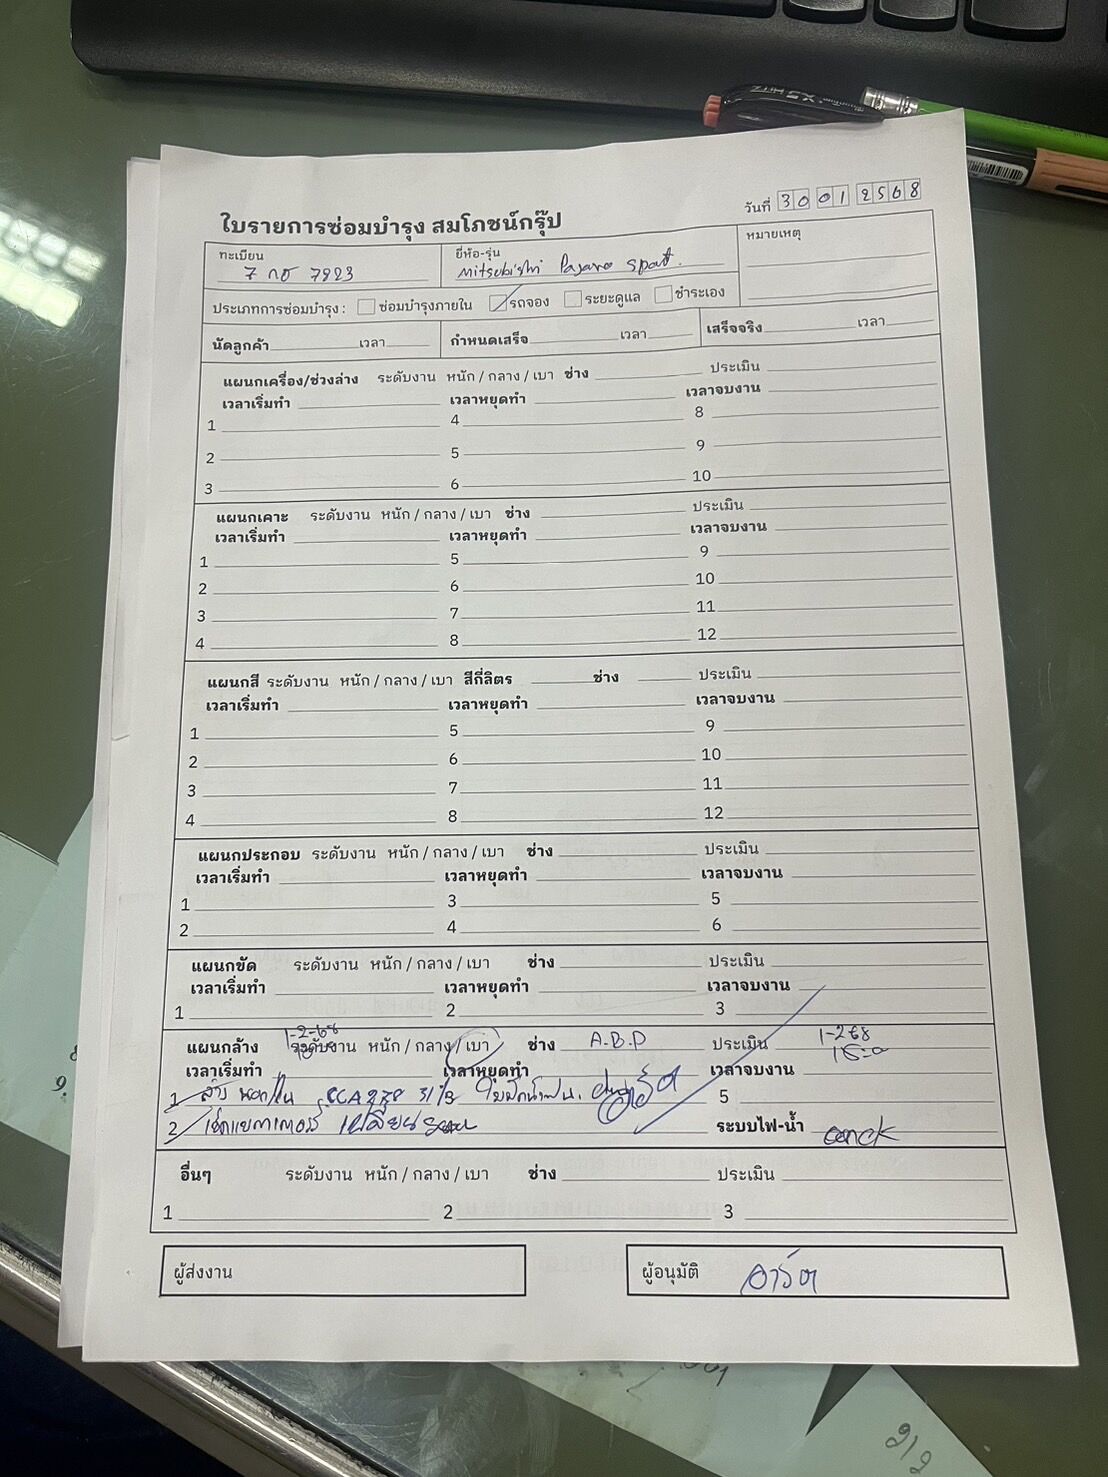 วันที่ 30 01 2568
ใบรายการซ่อมบำรุง สมโภชน์กรุ๊ป
ทะเบียน ยี่ห้อ-รุ่น หมายเหตุ
7 กช 7923 Mitsubishi Pajaro Sport.
ประเภทการซ่อมบำรุง : ซ่อมบำรุงภายใน รถจอง ระยะดูแล ชำระเอง
นัดลูกค้า เวลา กำหนดเสร็จ เวลา เสร็จจริง เวลา
แผนกเครื่อง/ช่วงล่าง ระดับงาน หนัก / กลาง / เบา ช่าง ประเมิน
เวลาเริ่มทำ เวลาหยุดทำ เวลาจบงาน
1 4 8
2 5 9
3 6 10
แผนกเคาะ ระดับงาน หนัก / กลาง / เบา ช่าง ประเมิน
เวลาเริ่มทำ เวลาหยุดทำ เวลาจบงาน
1 5 9
2 6 10
3 7 11
4 8 12
แผนกสี ระดับงาน หนัก / กลาง / เบา สีกี่ลิตร ช่าง ประเมิน
เวลาเริ่มทำ เวลาหยุดทำ เวลาจบงาน
1 5 9
2 6 10
3 7 11
4 8 12
แผนกประกอบ ระดับงาน หนัก / กลาง / เบา ช่าง ประเมิน
เวลาเริ่มทำ เวลาหยุดทำ เวลาจบงาน
1 3 5
2 4 6
แผนกขัด ระดับงาน หนัก / กลาง / เบา ช่าง ประเมิน
เวลาเริ่มทำ เวลาหยุดทำ เวลาจบงาน
1 2 3
1-2-68
แผนกล้าง ระดับงาน หนัก / กลาง / เบา ช่าง A.B.D ประเมิน 1-2-68
เวลาเริ่มทำ เวลาหยุดทำ เวลาจบงาน
1 ล้าง นอก/ใน 5
2 ระบบไฟ-น้ำ
อื่นๆ ระดับงาน หนัก / กลาง / เบา ช่าง ประเมิน
1 2 3
ผู้ส่งงาน ผู้อนุมัติ อาร์ต